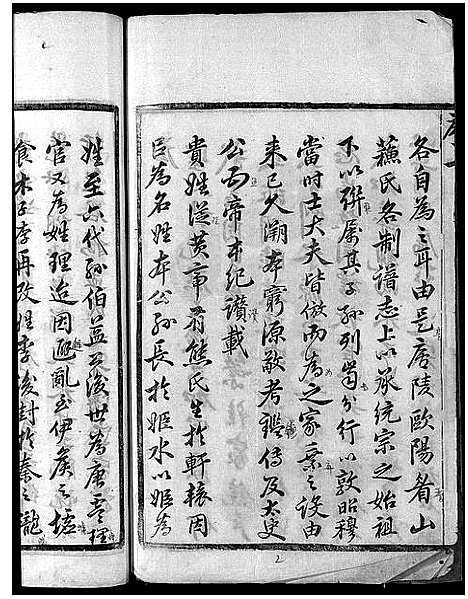 各自為之耳由是廬陵歐陽眉山
蘇氏各制譜志上以承統宗之始祖
下以聯屬其子孫列昭分行以敦昭穆
當時士大夫皆倣而為之家乘之設由
來已久溯本窮源敬考鑑傳及太史
公五帝本紀讃載
貴姓從黃帝有熊氏生於軒轅因
臣為名姓本公孫長於姬水以姬為
姓至六代孫伯益公後世為唐虞理
官又為姓理迨因避亂至伊侯之墟
食木子李再改理李後封於秦之龍
2